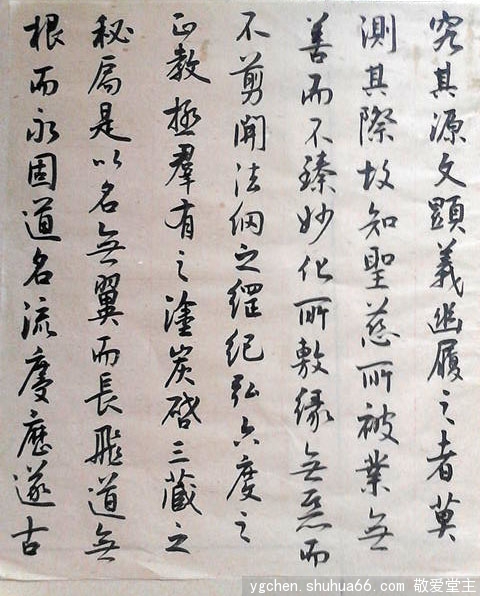 究其源文顯義幽履之者莫
測其際故知聖慈所被業無
善而不臻妙化所敷緣無惡而
不剪開法網之綱紀弘六度之
正教極羣有之塗炭啓三藏之
秘扃是以名無翼而長飛道無
根而永固道名流慶歷遂古
ygchen.shuhua66.com 敬爱堂主